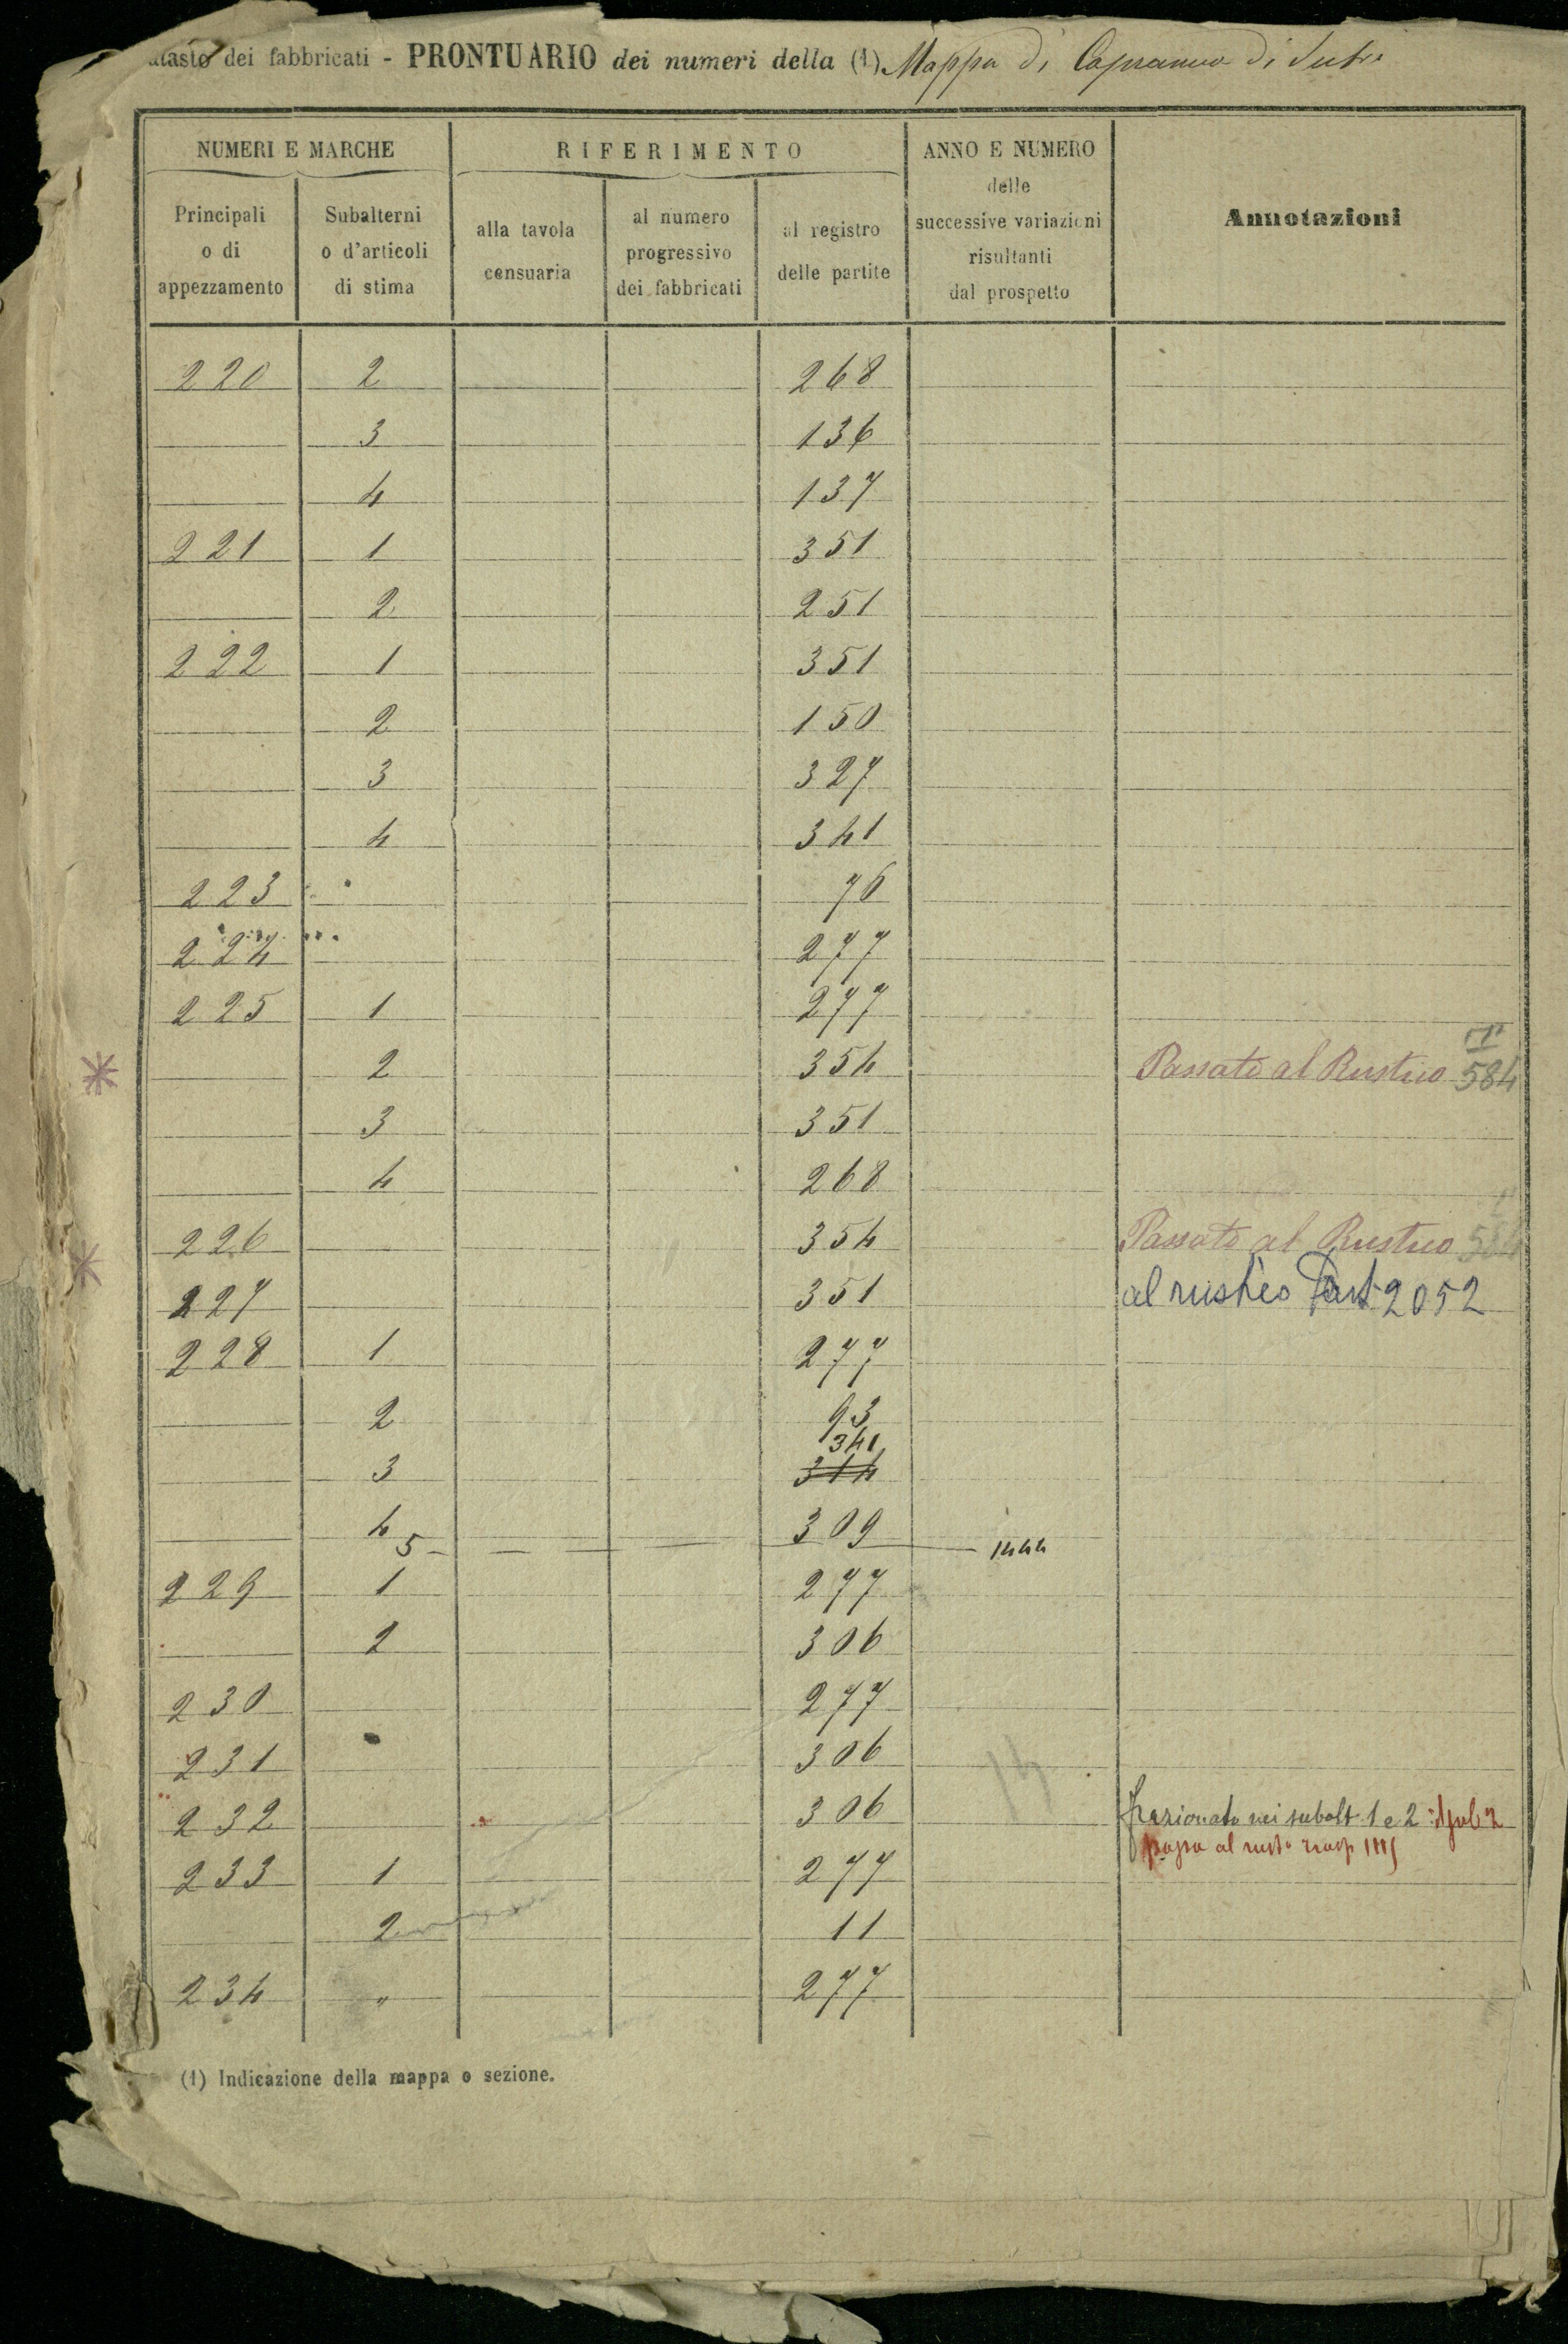 dei fabbricati - PRONTUARIO dei numeri della (1) Mappa di Capranica di Sutri
NUMERI E MARCHE
RIFERIMENTO
ANNO E NUMERO
delle
successive variazioni
risultanti
dal prospetto
Annotazioni
Principali
o di
appezzamento
Subalterni
o d'articoli
di stima
alla tavola
censuaria
al numero
progressivo
dei fabbricati
al registro
delle partite
220 2 268
3 136
4 137
221 1 351
2 251
222 1 351
2 150
3 327
4 341
223 76
224 277
225 1 277
2 354 Passato al Rustico 584
3 351
4 268
226 354 Passato al Rustico
227 351 al rustico Part 2052
228 1 277
2 93
341
3 314
4 309
5 1444
229 1 277
2 306
230 277
231 306
232 306 frazionato nei subalt. 1 e 2 il sub 2
233 1 277 passa al
2 11
234 " 277
(1) Indicazione della mappa o sezione.